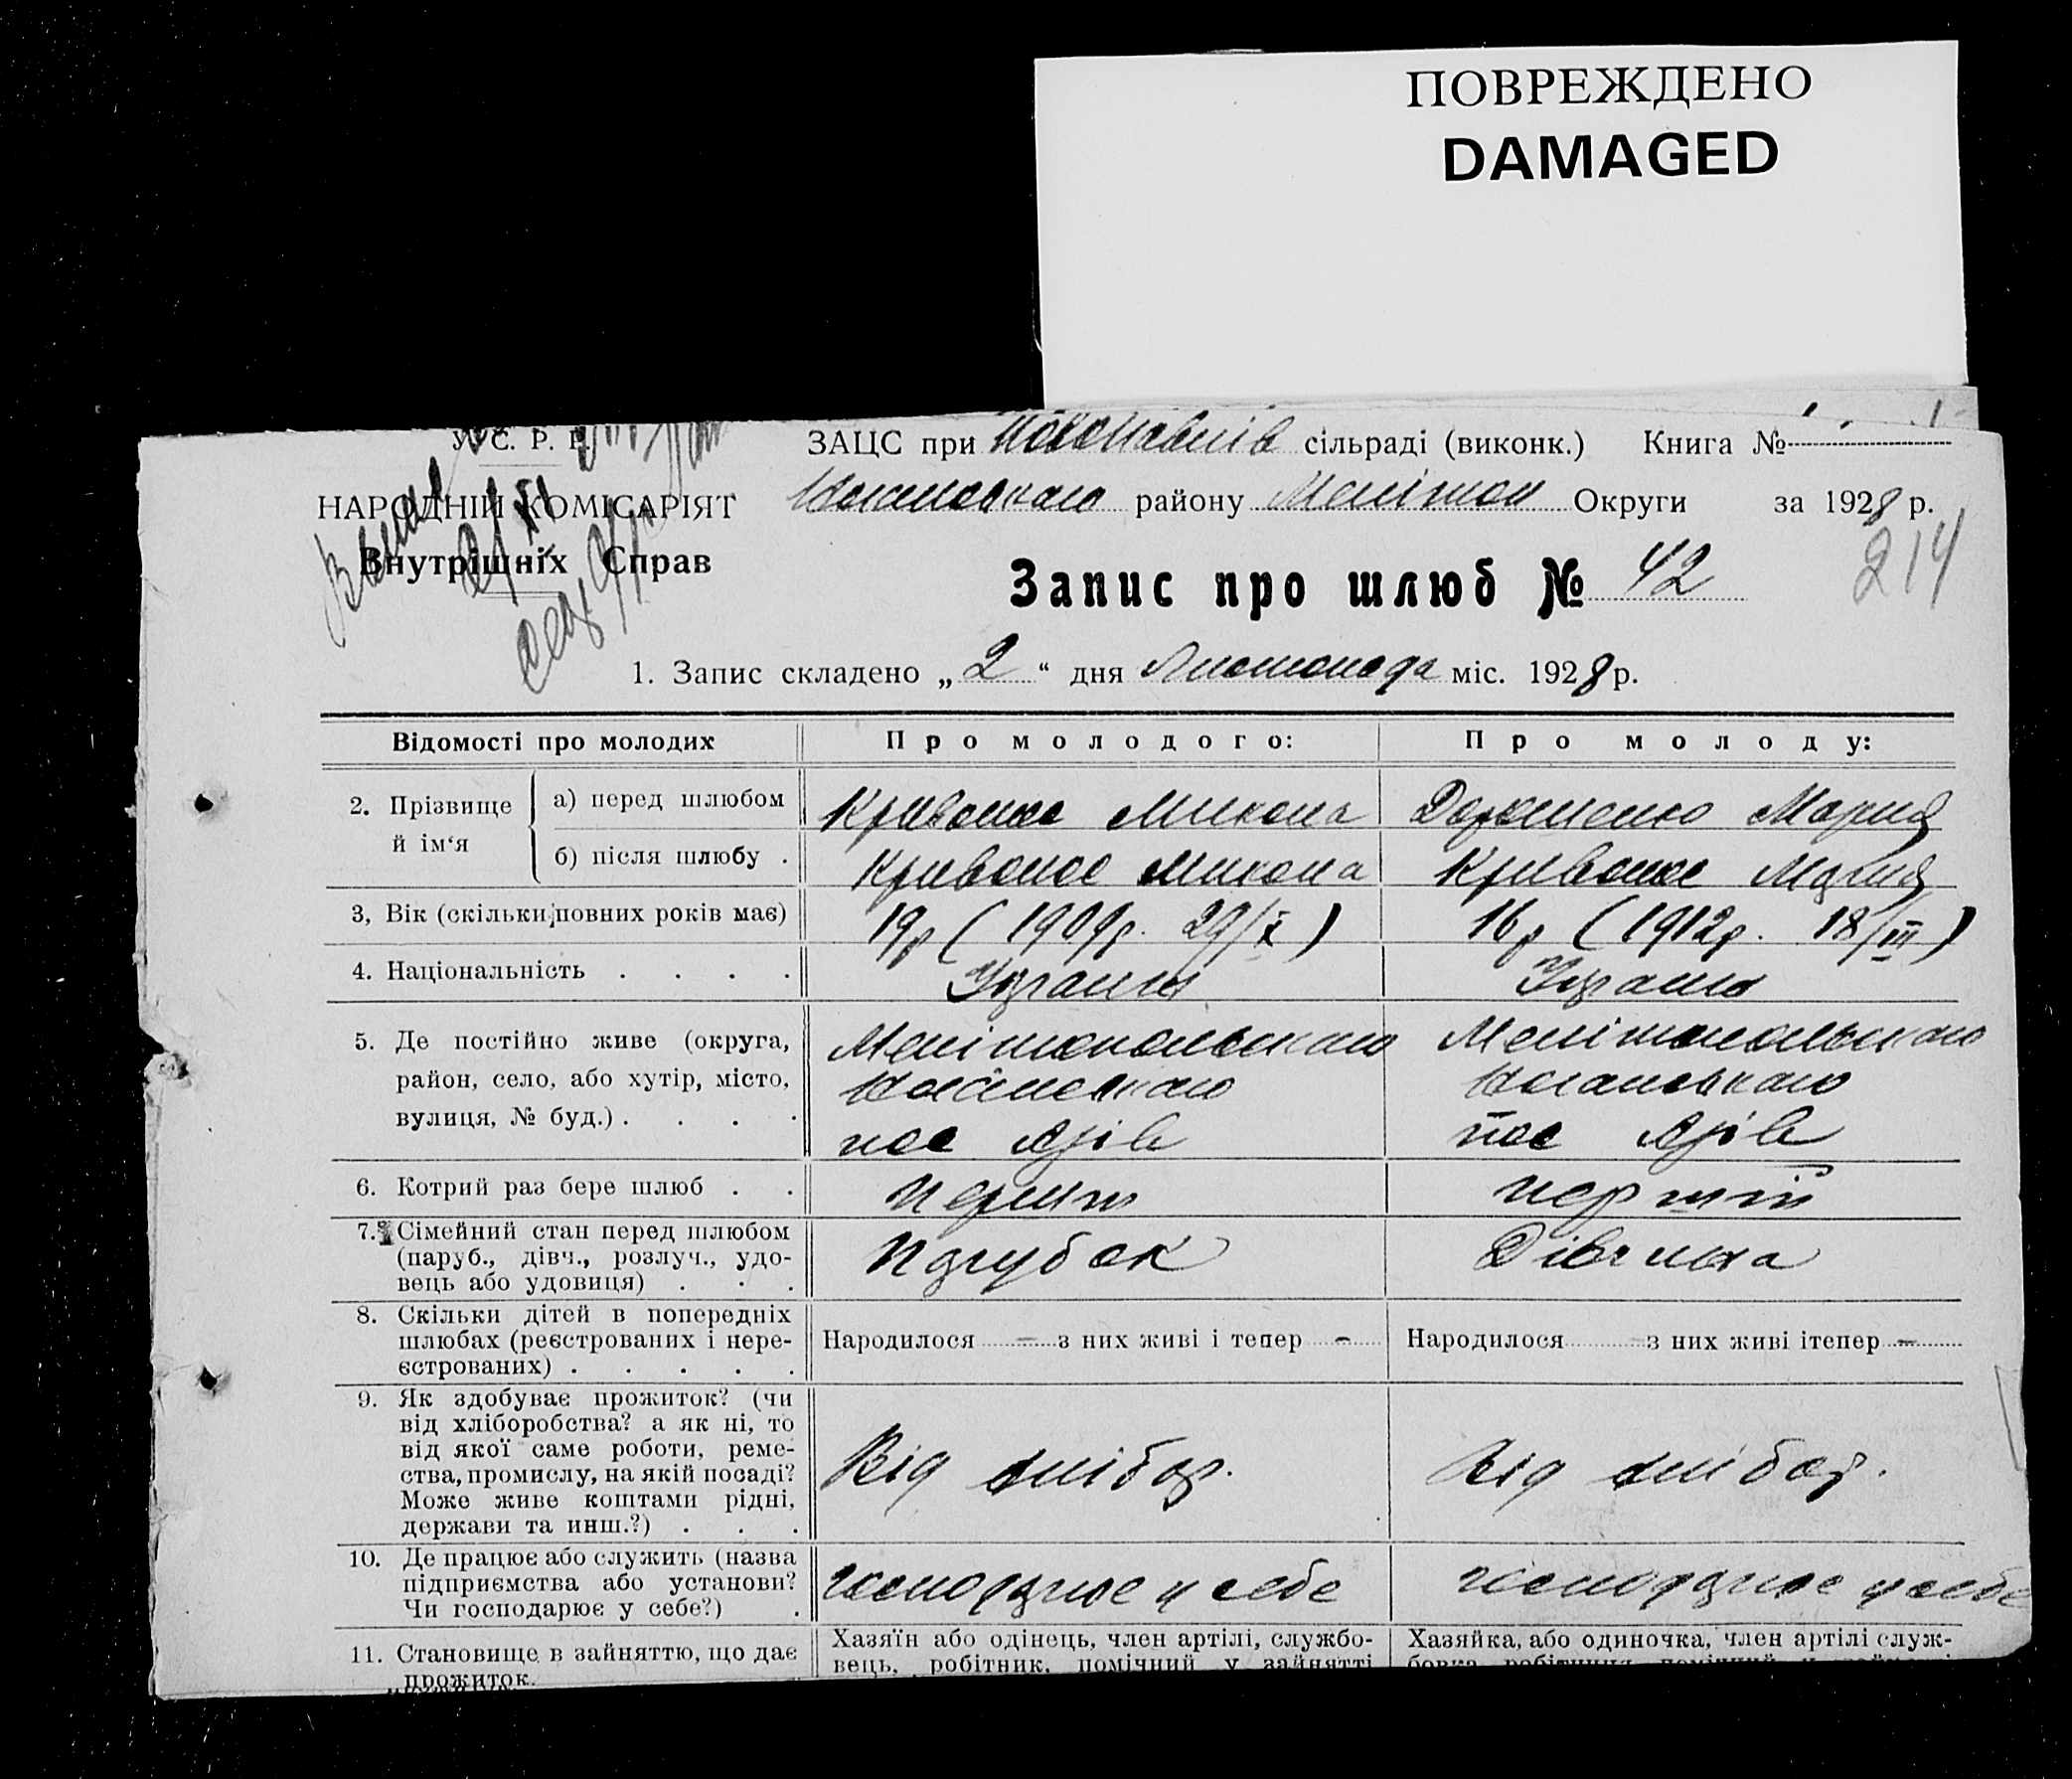 ПОВРЕЖДЕНО
DAMAGED
У. С. Р. Р. ЗАЦС при сільраді (виконк.) Книга №
НАРОДНІЙ КОМІСАРІЯТ району Мелітоп Округи за 1928 р.
Внутрішніх Справ
Запис про шлюб № 42
214
1. Запис складено „2“ дня Листопада міс. 1928 р.
Відомості про молодих Про молодого: Про молоду:
2. Прізвище й ім‘я а) перед шлюбом Кривонос Микола Мария
б) після шлюбу . Кривонос Микола Кривонос Мария
3, Вік (скільки повних років має) 19 р ( 1909 р. 29/X ) 16 р ( 1912 р. 18/III )
4. Національність . . . . Україн Україн
5. Де постійно живе (округа, Мелітопольского Мелітопольского
район, село, або хутір, місто,
вулиця, № буд.) . . . . пос пос
6. Котрий раз бере шлюб . . перший
7. Сімейний стан перед шлюбом Парубок Дівчина
(паруб., дівч., розлуч., удо-
вець або удовиця) . . .
8. Скільки дітей в попередніх
шлюбах (реєстрованих і нере- Народилося – з них живі і тепер – Народилося – з них живі ітепер –
єстрованих) . . . . .
9. Як здобуває прожиток? (чи
від хліборобства? а як ні, то
від якої саме роботи, реме- Від хлібор. Від хлібор.
ства, промислу, на якій посаді?
Може живе коштами рідні,
держави та инш.?) . . .
10. Де працює або служить (назва
підприємства або установи? у себе у себе
Чи господарює у себе?) .
11. Становище в зайняттю, що дає Хазяїн або одінець, член артілі, службо- Хазяйка, або одиночка, член артілі служ-
прожиток. вець, робітник, помічний у зайнятті